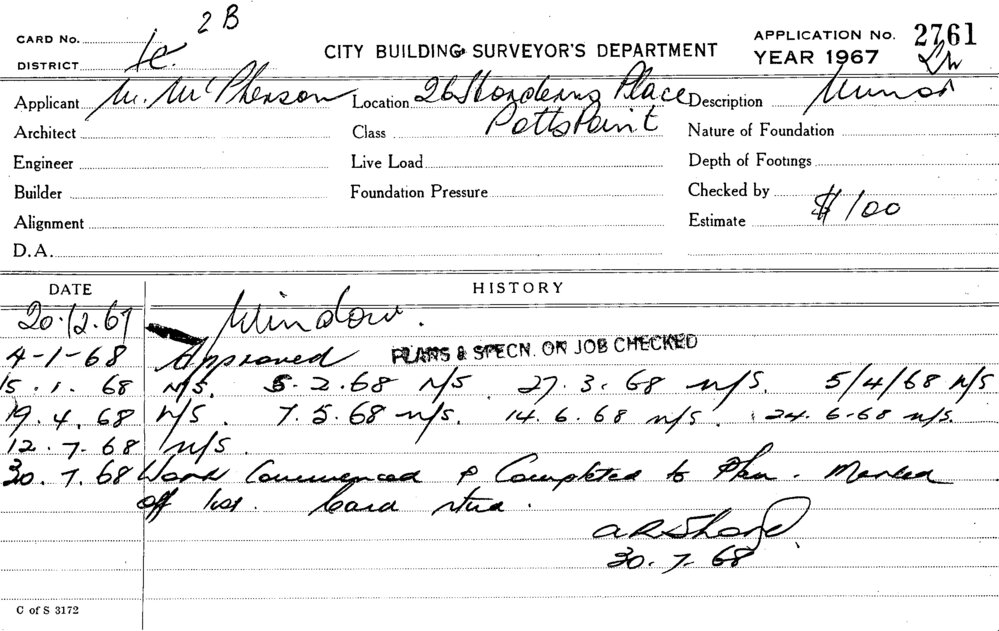 2B
CARD No.
DISTRICT
CITY BUILDING SURVEYOR'S DEPARTMENT
APPLICATION No. 2761
YEAR 1967
Applicant M. McPherson Location 26 Place Description Minor
Architect Class Potts Point Nature of Foundation
Engineer Live Load Depth of Footings
Builder Foundation Pressure Checked by
Alignment Estimate $100
D.A.
DATE HISTORY
20.12.67 Window.
4-1-68 Approved PLANS & SPECN. ON JOB CHECKED
15.1.68 N/S. 5.2.68 N/S 27.3.68 N/S. 5/4/68 N/S
19.4.68 N/S. 7.5.68 N/S. 14.6.68 N/S. 24.6.68 N/S.
12.7.68 N/S.
30.7.68 Work Commenced & Completed to Plan. Marked
off list. Card
30.7.68
C of S 3172